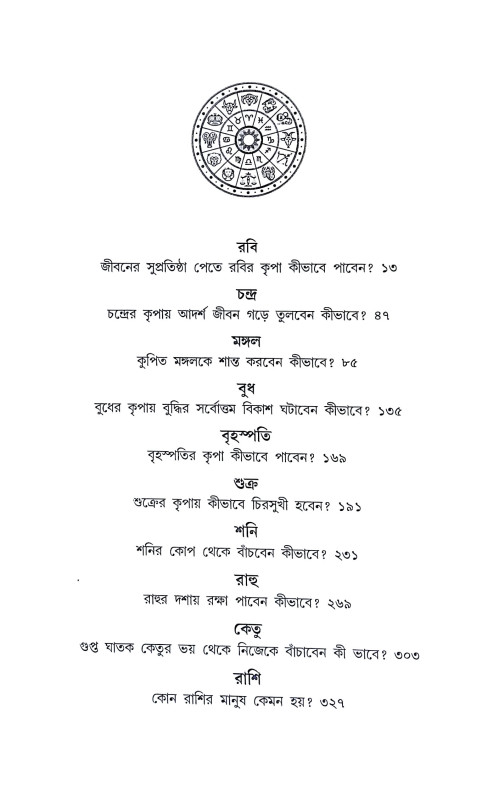 রবি
জীবনের সুপ্রতিষ্ঠা পেতে রবির কৃপা কীভাবে পাবেন? ১৩
চন্দ্র
চন্দ্রের কৃপায় আদর্শ জীবন গড়ে তুলবেন কীভাবে? ৪৭
মঙ্গল
কুপিত মঙ্গলকে শান্ত করবেন কীভাবে? ৮৫
বুধ
বুধের কৃপায় বুদ্ধির সর্বোত্তম বিকাশ ঘটাবেন কীভাবে? ১৩৫
বৃহস্পতি
বৃহস্পতির কৃপা কীভাবে পাবেন? ১৬৯
শুক্র
শুক্রের কৃপায় কীভাবে চিরসুখী হবেন? ১৯১
শনি
শনির কোপ থেকে বাঁচবেন কীভাবে? ২৩১
রাহু
রাহুর দশায় রক্ষা পাবেন কীভাবে? ২৬৯
কেতু
গুপ্ত ঘাতক কেতুর ভয় থেকে নিজেকে বাঁচাবেন কী ভাবে? ৩০৩
রাশি
কোন রাশির মানুষ কেমন হয়? ৩২৭